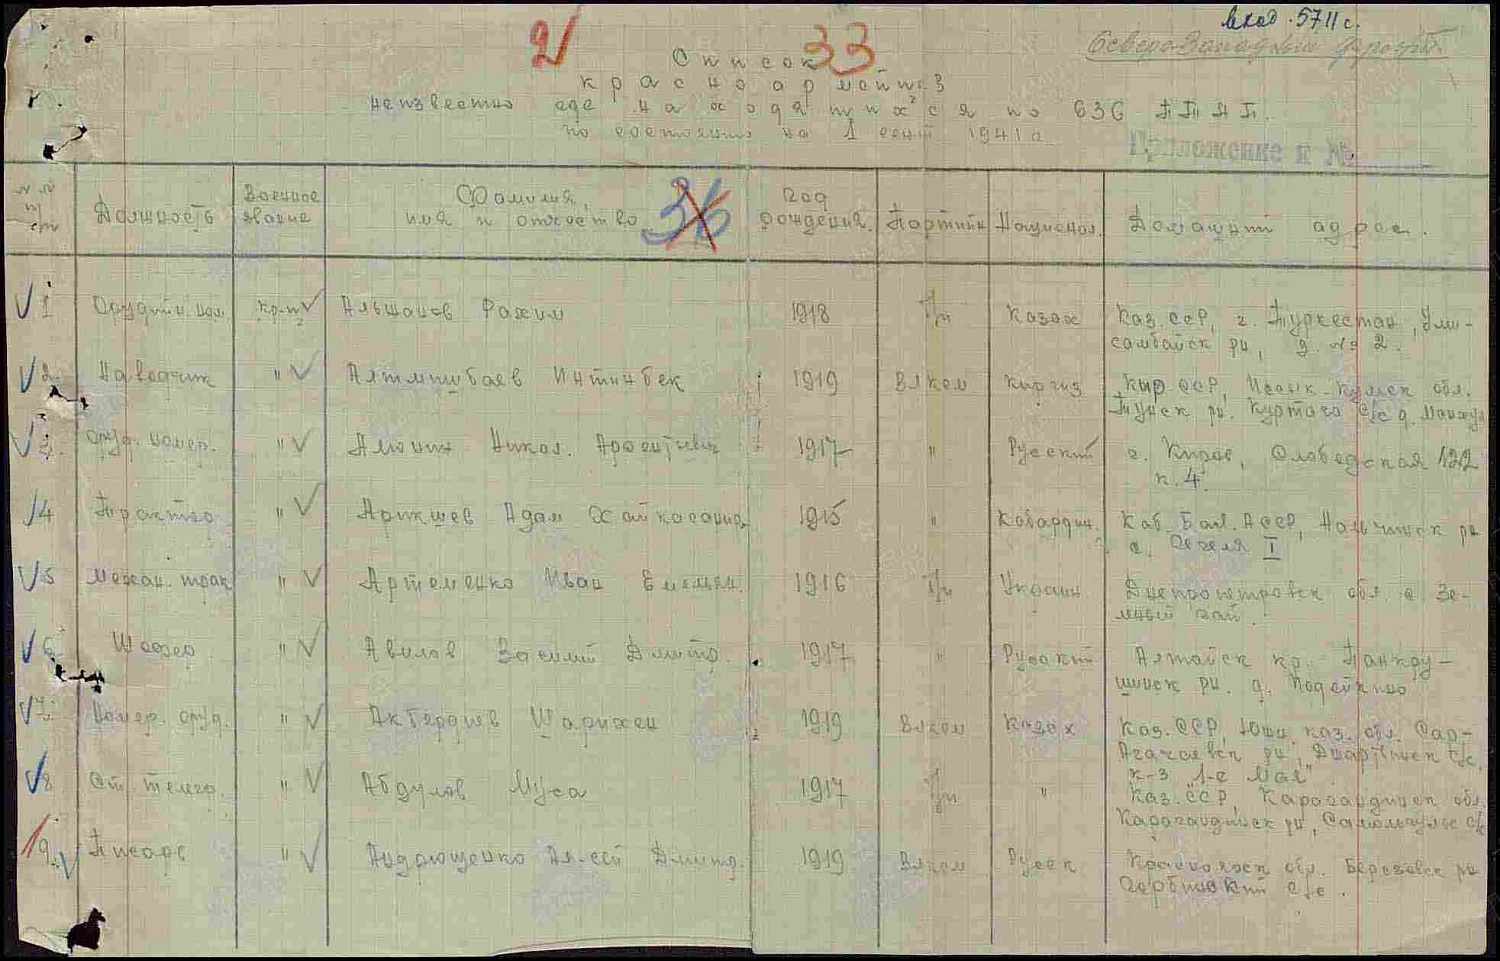 вход. 5711с.
Северо-Западный фронт
2 33
Список
красноармейцев
неизвестно где находящихся по 636 АПАП.
по состоянию на 1 сент 1941г.
Приложение к №
№№ п/п Должность Военное звание Фамилия, имя и отчество 36 Год рождения. Партийн Национал. Домашний адрес.
1 Орудийн. ном. кр-ц Альшанов Рахим 1918 б/п Казах Каз. ССР, г. Туркестан,
р-н, д. № 2.
2. Наводчик " 1919 ВЛКСМ Киргиз Кир ССР, Иссык-Кульск обл.
р-н. с/с д.
3. Оруд. номер. " Никол. Арсентьевич 1917 " Русский г. Киров, Слободская 122
к. 4.
4 Трактор " Адам 1915 " Кабардин. Каб. Балк. АССР, Нальчикск р-н
с. I
5 Механ. трак " Артеменко Иван Емельян. 1916 б/п Украин Днепропетровск обл с Зе-
лёный гай.
6 Шофер " Авилов Василий Дмитр. 1917 " Русский Алтайск кр. Панкру-
шинск р-н. д. Подойниково
7. Номер. оруд. " Актердиев 1919 ВЛКСМ Казах Каз. ССР, Южн каз. обл. Сар-
Агачаевск р-н, с/с,
к-з "1-е Мая"
8 Ст телегр. " Абдулов Муса 1917 б/п " Каз. ССР, Карагандинск обл.
Карагандинск р-н, с/с
9. Писарь " Андрющенко Ал-ей Дмитр. 1919 ВЛКСМ Русск Красноярск обл. Березовск р-н
с/с.